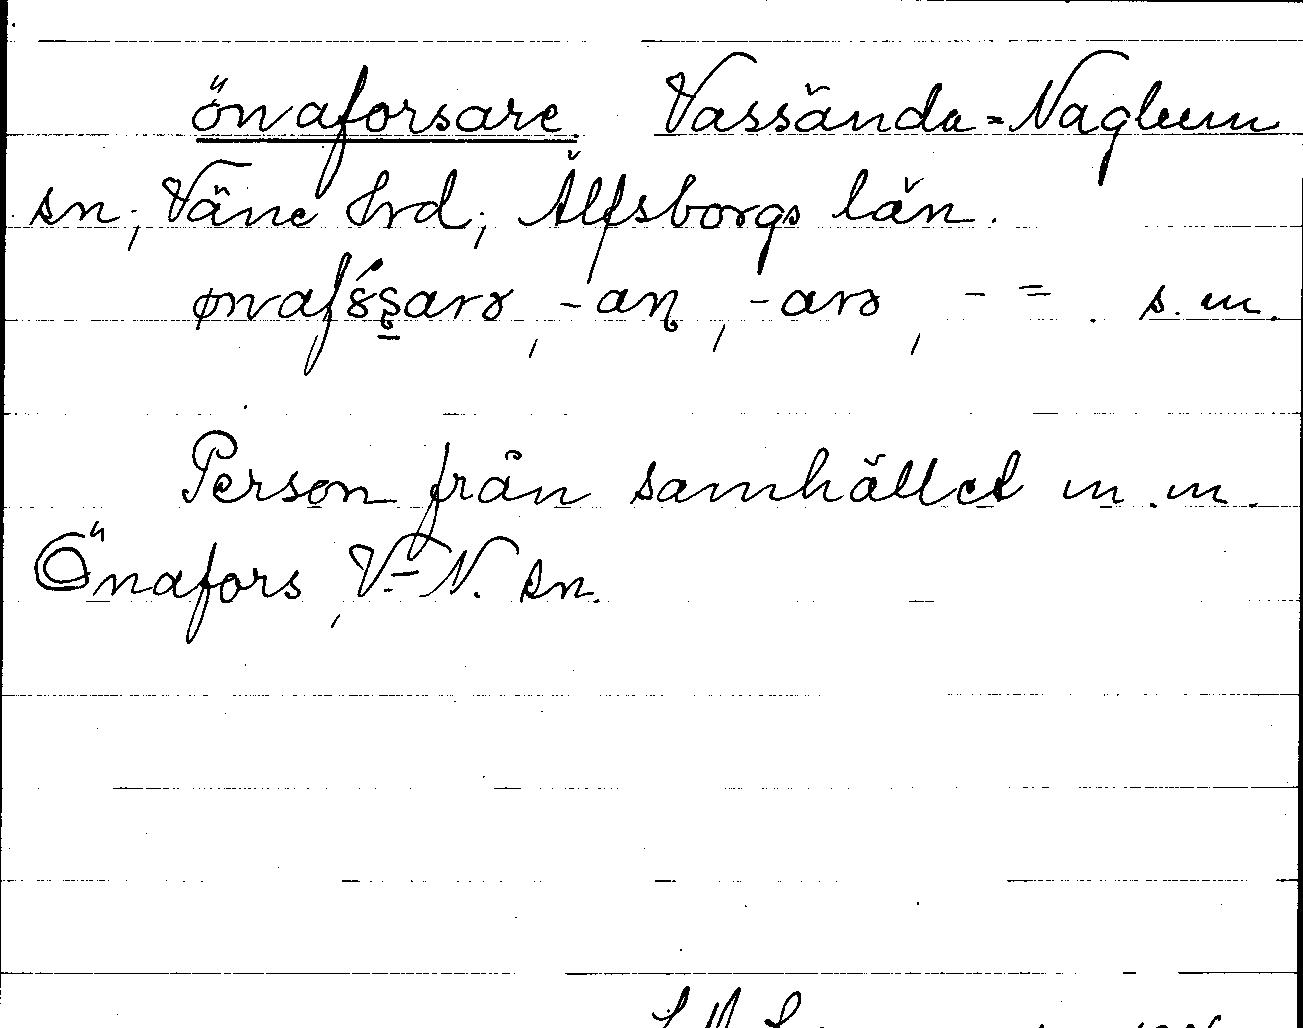 önaforsare Vassända-Naglum
sn, Väne hrd, Älfsborgs län.
ønafɤ́s̱arɤ, -aɳ, -arɤ, - = . s.m.
Person från samhället m.m.
Önafors, V.-N. sn.